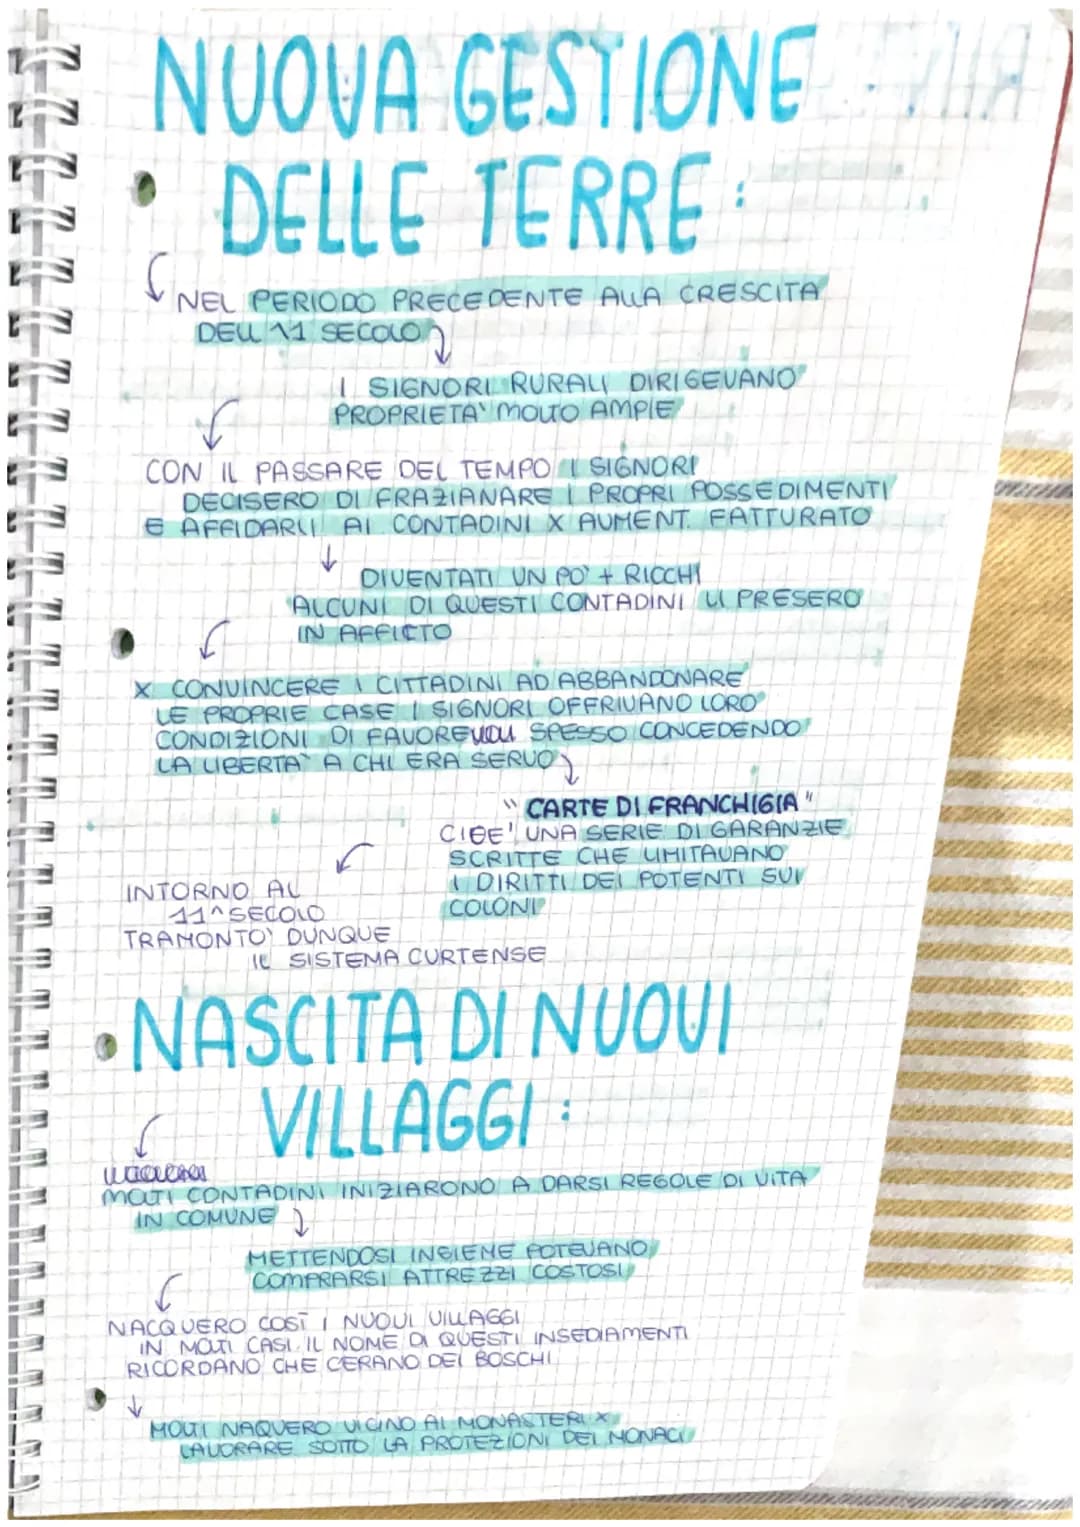 NUOVA GESTIONE
DELLE TERRE:
NEL PERIODO PRECEDENTE ALLA CRESCITA
DELL 11 SECOLO
I SIGNORI RURALI DIRIGEVANO
PROPRIETA' MOLTO AMPIE
CON IL PASSARE DEL TEMPO I SIGNORI
DECISERO DI FRAZIANARE I PROPRI POSSEDIMENTI
E AFFIDARLI AI CONTADINI X AUMENT. FATTURATO
DIVENTATI UN PO' + RICCHI
ALCUNI DI QUESTI CONTADINI LI PRESERO
IN AFFICTO
X CONVINCERE I CITTADINI AD ABBANDONARE
LE PROPRIE CASE I SIGNORI OFFRIVANO LORO
CONDIZIONI DI FAVOREVOLI SPESSO CONCEDENDO
LA LIBERTA' A CHI ERA SERVO
"CARTE DI FRANCHIGIA"
CIOE' UNA SERIE DI GARANZIE
SCRITTE CHE LIMITAVANO
I DIRITTI DEI POTENTI SUI
COLONI
INTORNO AL
11^ SECOLO
TRAMONTO' DUNQUE
IL SISTEMA CURTENSE
NASCITA DI NUOVI
VILLAGGI:
MOLTI CONTADINI INIZIARONO A DARSI REGOLE DI VITA
IN COMUNE
METTENDOSI INSIEME POTEVANO
COMPRARSI ATTREZZI COSTOSI
NACQUERO COSÌ I NUOVI VILLAGGI
IN MOLTI CASI IL NOME DI QUESTI INSEDIAMENTI
RICORDANO CHE CERANO DEI BOSCHI
MOLTI NAQUERO VICINO AI MONASTERI X
LAVORARE SOTTO LA PROTEZIONI DEI MONACI